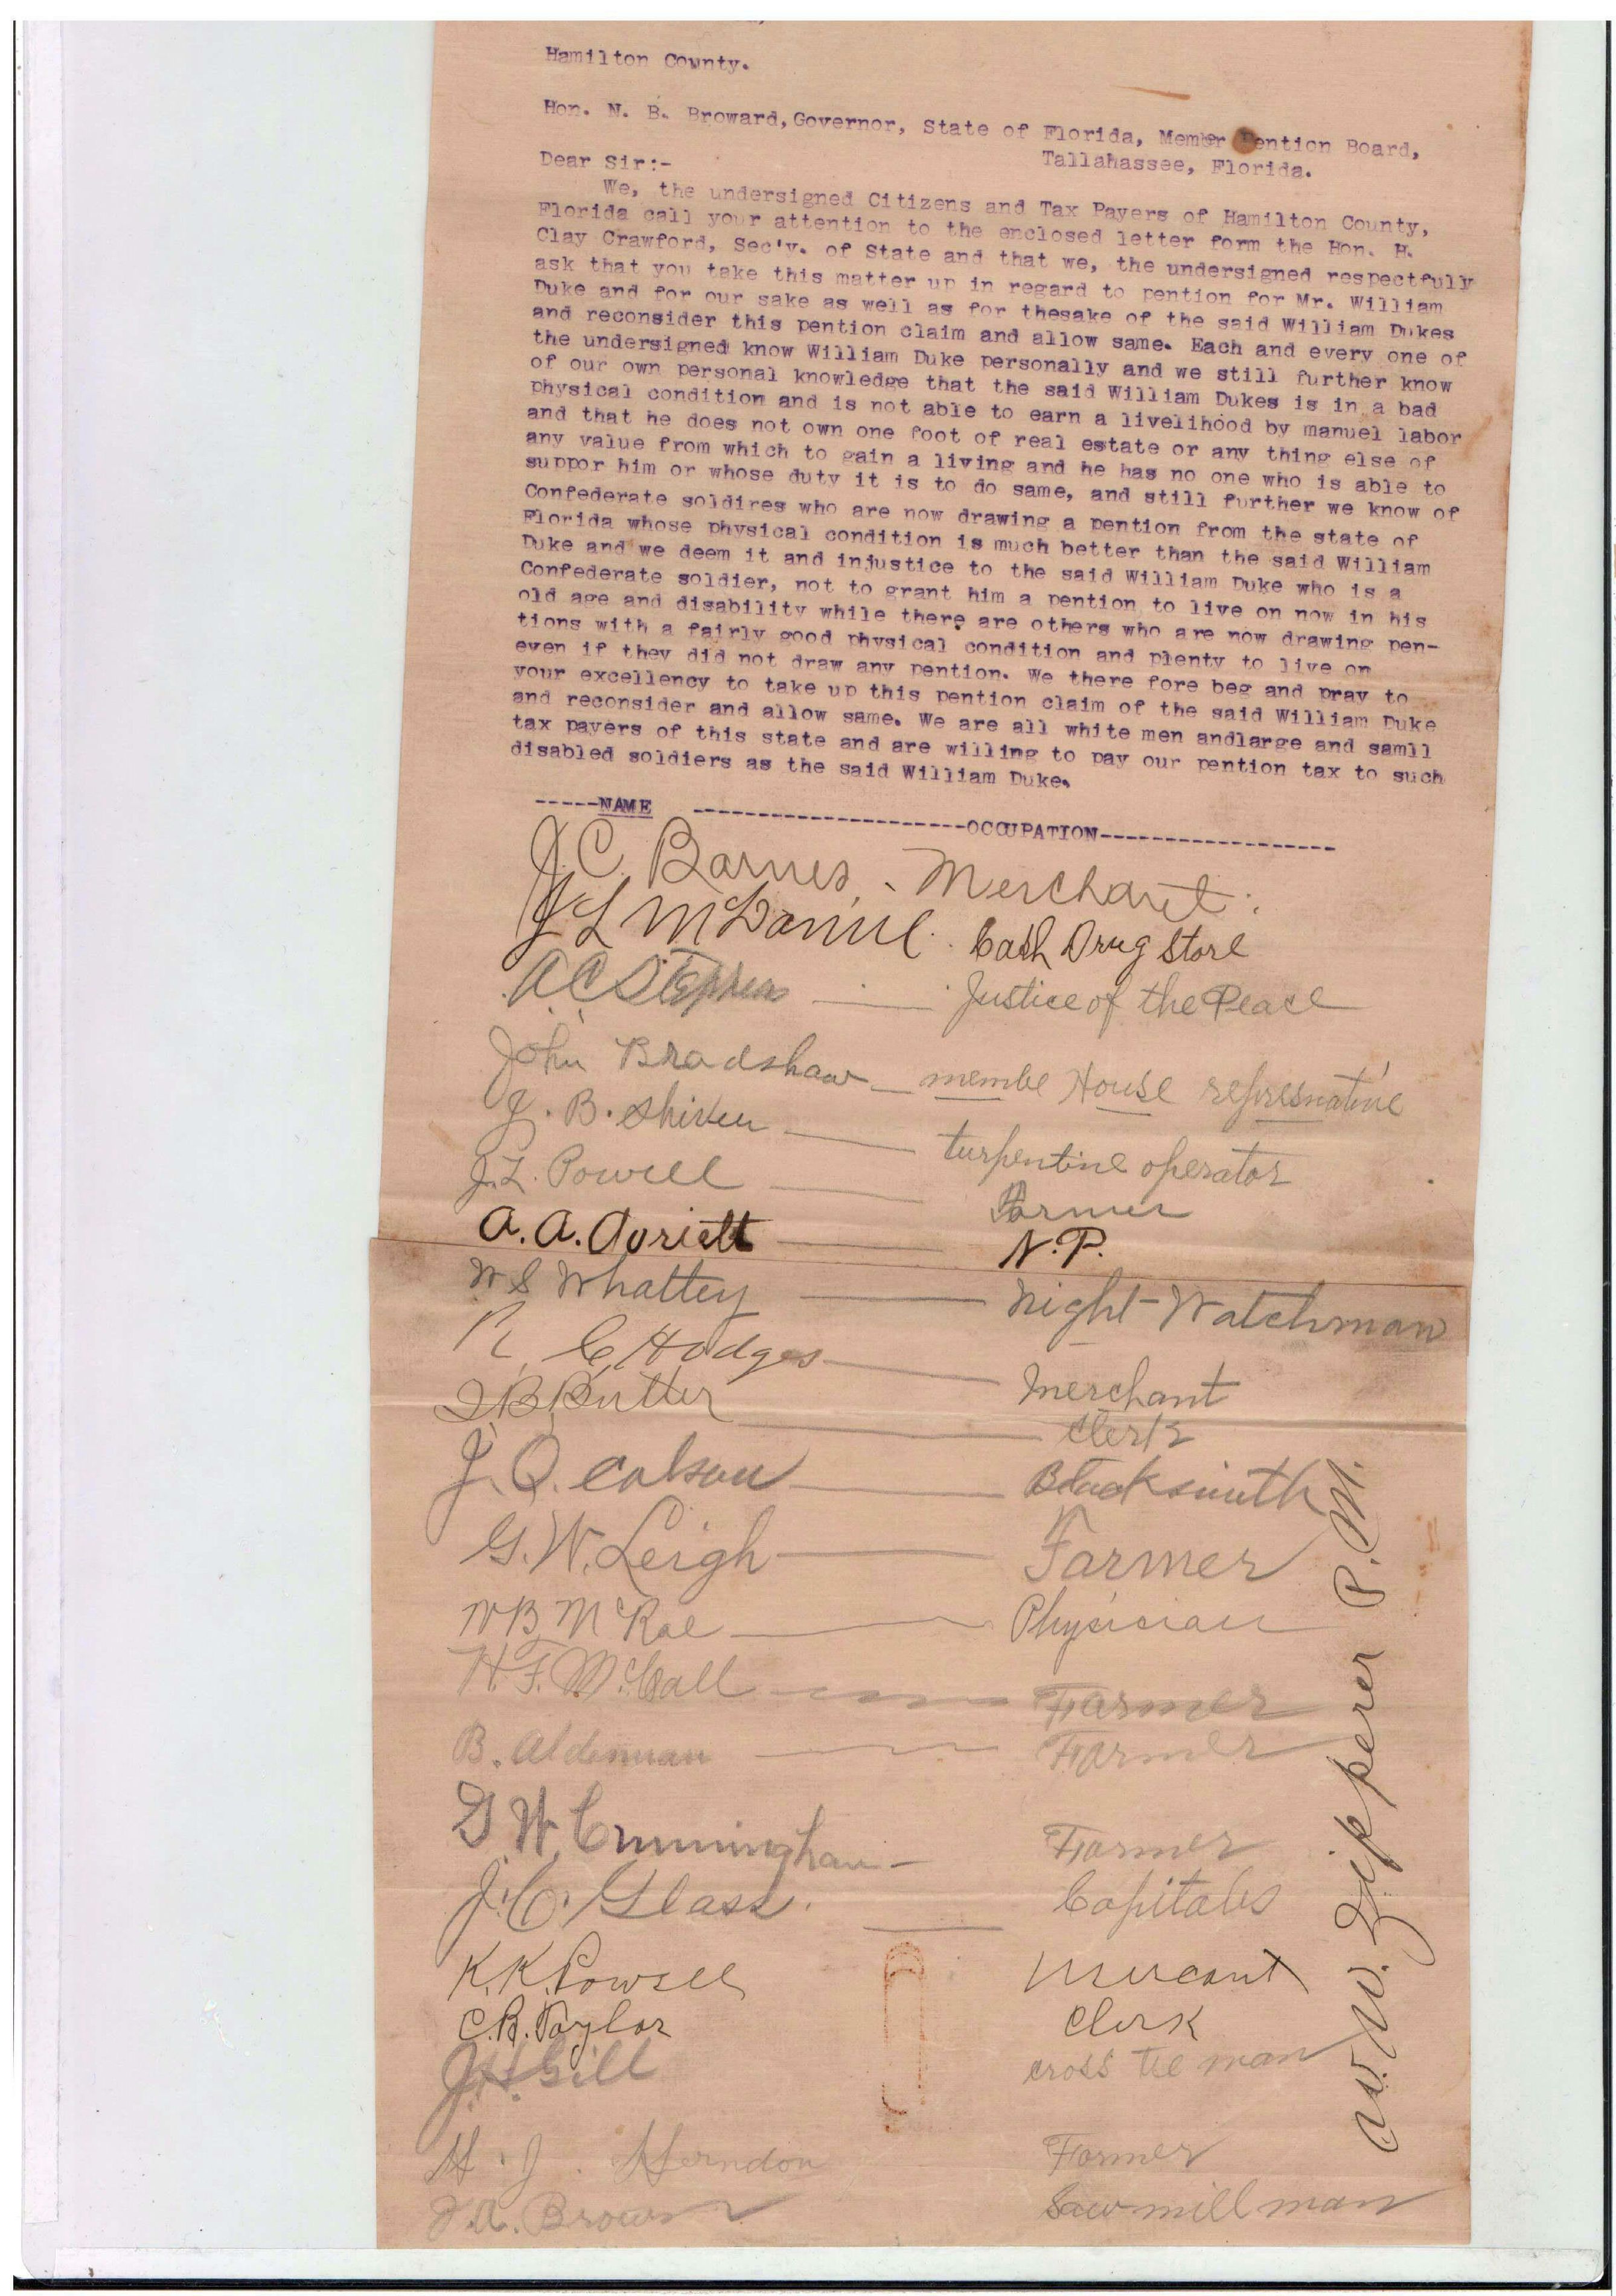 Hamilton County.
Hon. N. B. Broward, Governor, State of Florida, Member Pention Board,
Tallahassee, Florida.
Dear Sir:-
We, the undersigned Citizens and Tax Payers of Hamilton County,
Florida call your attention to the enclosed letter form the Hon. H.
Clay Crawford, Sec'y. of State and that we, the undersigned respectfuly
ask that you take this matter up in regard to pention for Mr. William
Duke and for our sake as well as for thesake of the said William Dukes
and reconsider this pention claim and allow same. Each and every one of
the undersigned know William Duke personally and we still further know
of our own personal knowledge that the said William Dukes is in a bad
physical condition and is not able to earn a livelihood by manuel labor
and that he does not own one foot of real estate or any thing else of
any value from which to gain a living and he has no one who is able to
suppor him or whose duty it is to do same, and still further we know of
Confederate soldires who are now drawing a pention from the state of
Florida whose physical condition is much better than the said William
Duke and we deem it and injustice to the said William Duke who is a
Confederate soldier, not to grant him a pention to live on now in his
old age and disability while there are others who are now drawing pen-
tions with a fairly good physical condition and plenty to live on
even if they did not draw any pention. We there fore beg and pray to
your excellency to take up this pention claim of the said William Duke
and reconsider and allow same. We are all white men andlarge and samll
tax payers of this state and are willing to pay our pention tax to such
disabled soldiers as the said William Duke.
-----NAME ---------------------OCCUPATION------------------
J C Barnes - Merchant.
J L McDaniel. Cash Drug Store
A C Stephens — Justice of the Peace
John Bradshaw — membe House represnative
J. B. Shiver — turpentine operator
J. L. Powell — Farmer
A. A. Avriett — N. P.
W S Whatley — Night-Watchman
R. C. Hodges — Merchant
J B Butler — Clerk
J. Q. Colson — Blacksmith
G. W. Leigh — Farmer
W B McRae — Physician
H. F. McCall — Farmer
B. Alderman — Farmer
G W Cunningham — Farmer
J. C. Glass. — Capitalis
K. K. Powell Mercant
C. R. Taylor Clerk
J. H. Gill cross tie man
H. J. Herndon Farmer
J. A. Brown Saw mill man
A. W. Zipperer P. M.